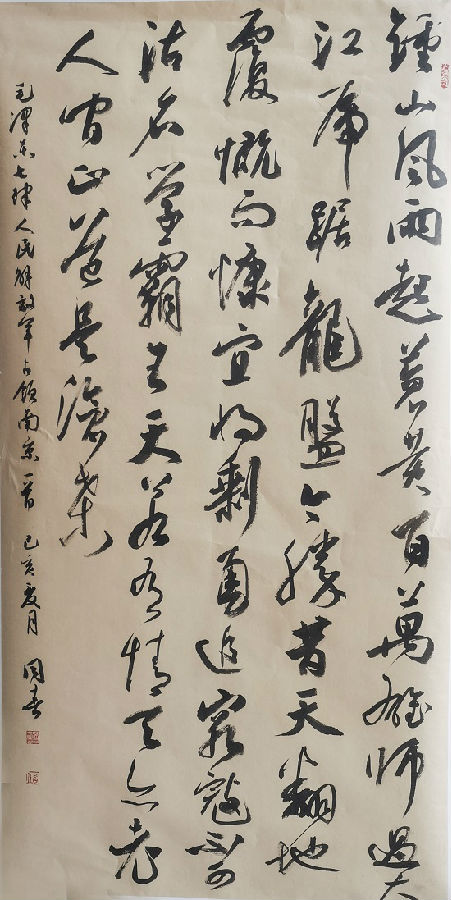 鍾山風雨起蒼黄百萬雄師過大
江虎踞龍盤今勝昔天翻地
覆慨而慷宜将剩勇追窮寇不可
沽名學霸王天若有情天亦老
人间正道是滄桑
毛澤東七律人民解放軍占領南京一首 己亥夏月